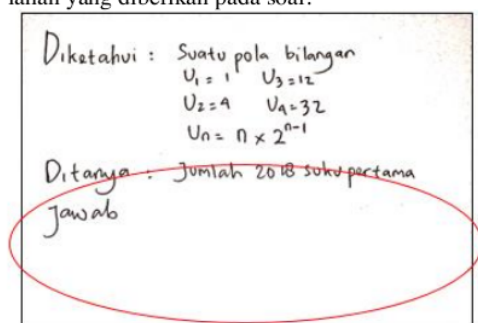 lahan yang diberikan pada soal.
Diketahui : Suatu pola bilangan
U₁ = 1 U₃ = 12
U₂ = 4 U₄ = 32
Uₙ = n × 2ⁿ⁻¹
Ditanya : Jumlah 2018 suku pertama
Jawab